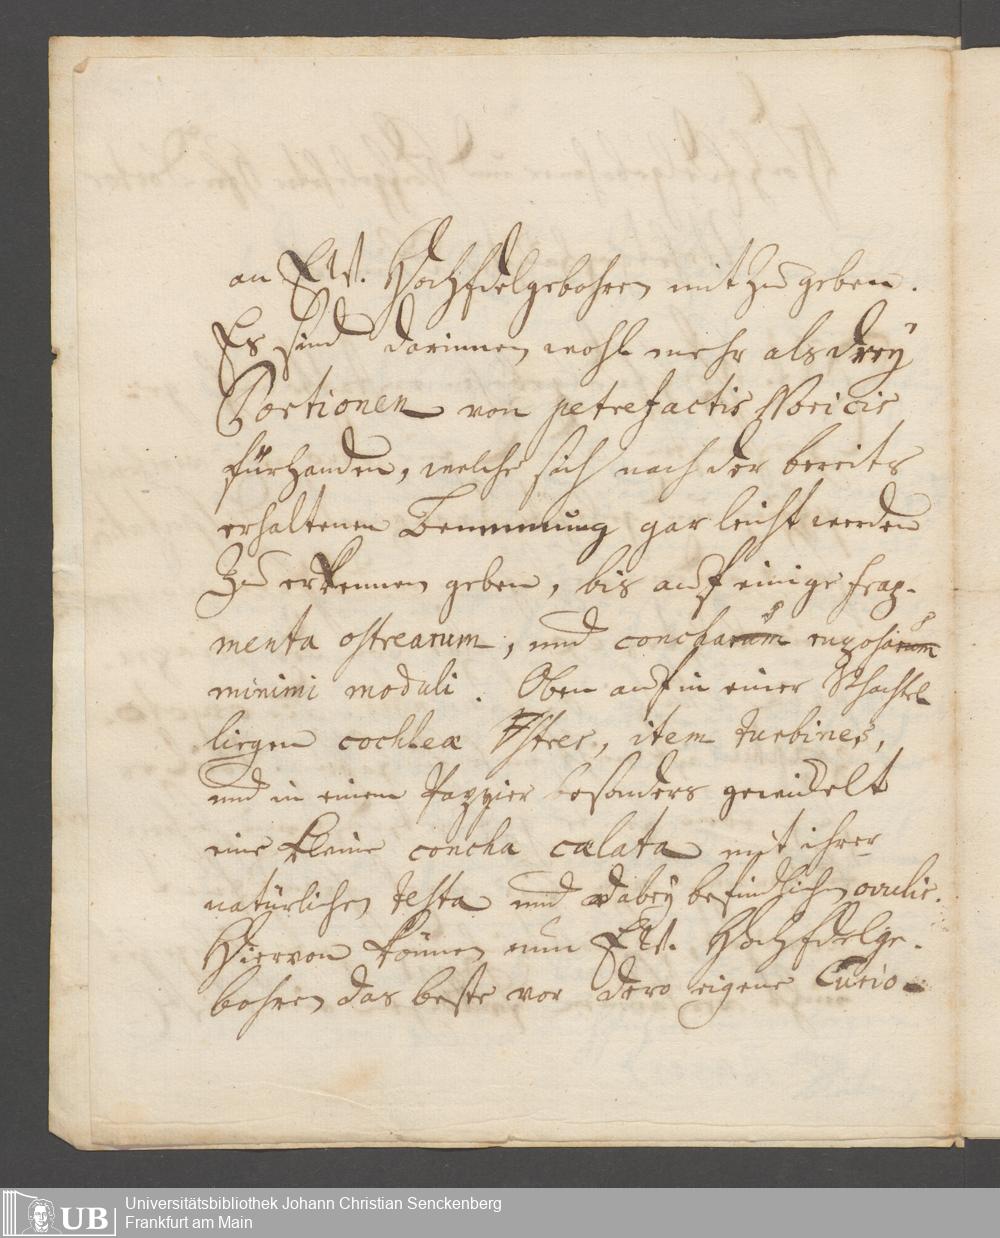 an Ew. HochEdelgebohren mit zu geben.
Es sind darinnen wohl mehr als drey
Portionen von petrefactis Noricis
fürhanden, welche sich nach der bereits
erhaltenen Benennung gar leicht werden
zu erkennen geben, bis auf einige frag-
menta ostrearum, und concharum rugosarum
minimi moduli. Oben auf in einer Schachtel
liegen cochleæ Ostres, item turbines,
und in einem Pappier besonders gewickelt
eine kleine concha cælata mit ihrer
natürlichen testa und dabey befindlichen ovulis.
Hiervon können nun Ew. HochEdelge-
bohren das beste vor dero eigene Curio-
UB
Universitätsbibliothek Johann Christian Senckenberg
Frankfurt am Main